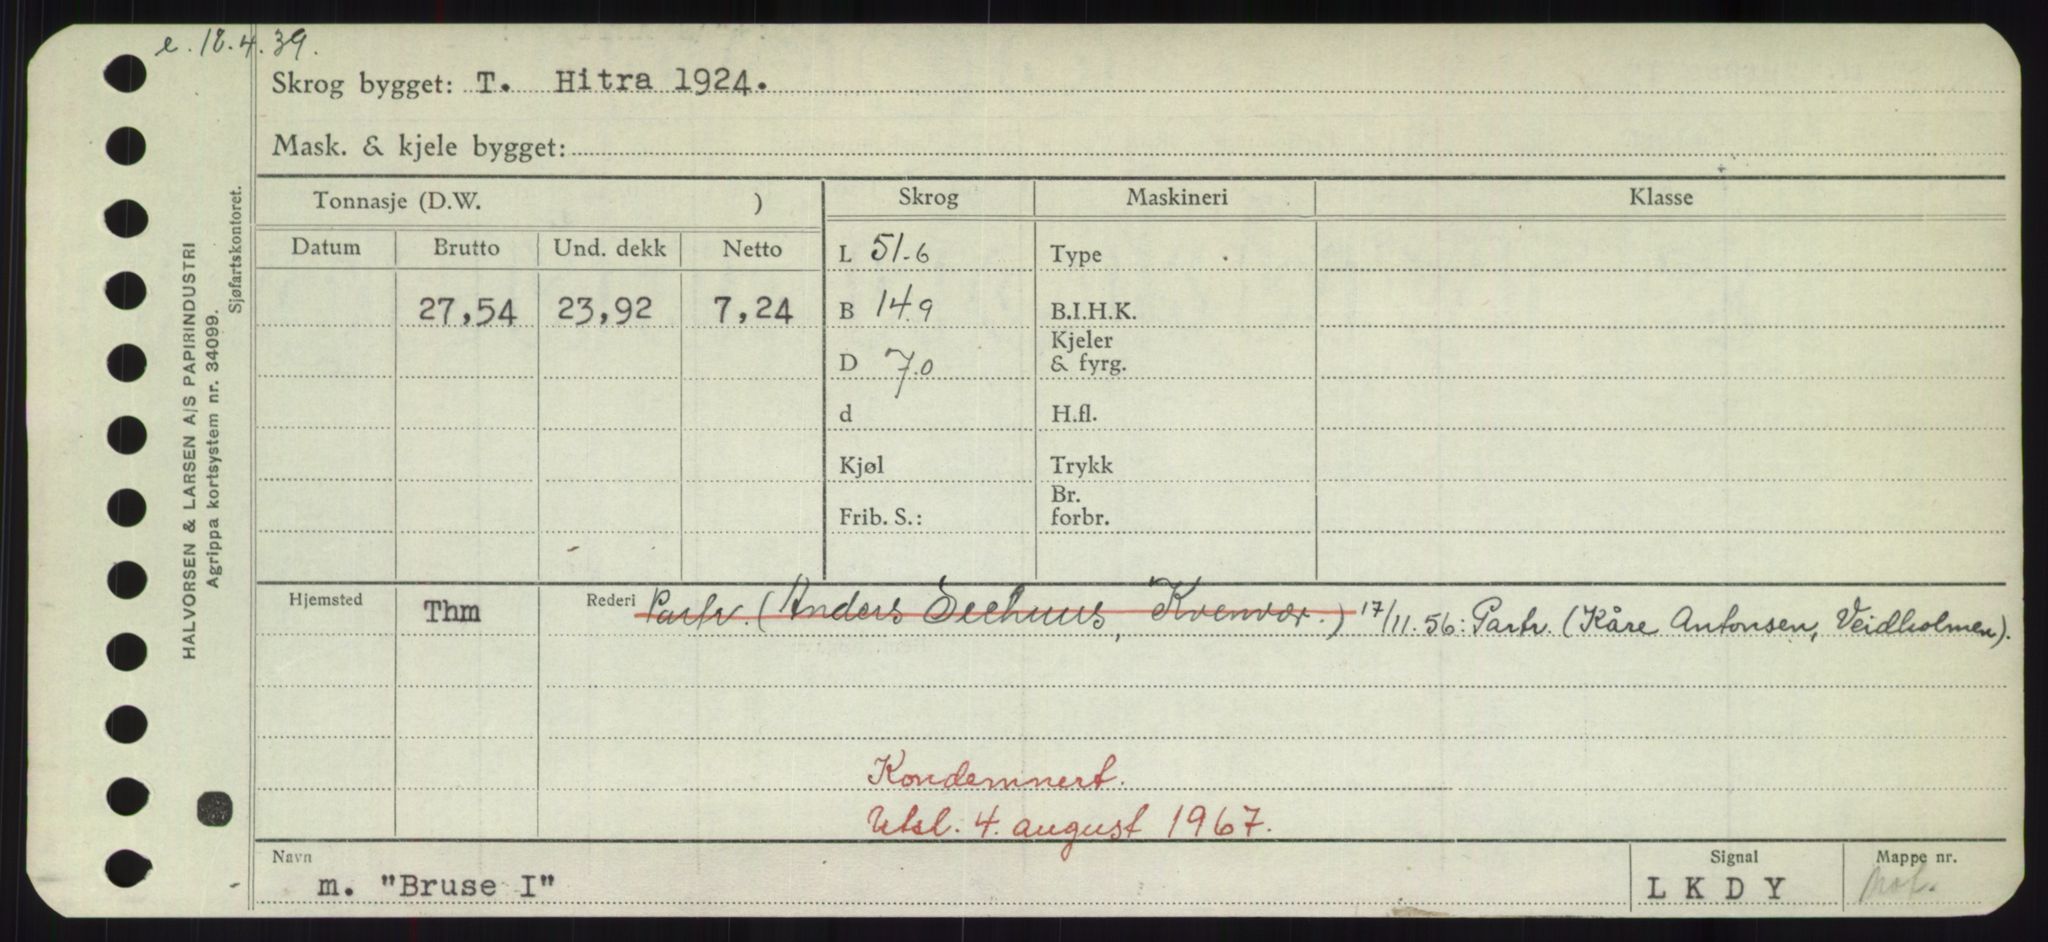 e. 18.4.39.
Skrog bygget: T. Hitra 1924.
Mask. & kjele bygget:
Tonnasje (D.W. ) Skrog Maskineri Klasse
Datum Brutto Und. dekk Netto L 51.6 Type
27,54 23,92 7,24 B 14.9 B.I.H.K.
Kjeler
D 7.0 & fyrg.
d H.fl.
Kjøl Trykk
Br.
Frib. S.: forbr.
Hjemsted Thm Rederi Partr. (Anders Seehuus, Kvenvær.) 17/11.56: Partr. (Kåre Antonsen, Veidholmen).
Kondemnert.
Utsl. 4. august 1967.
Navn Signal Mappe nr.
m. "Bruse I" LKDY Mot.
HALVORSEN & LARSEN A/S PAPIRINDUSTRI
Agrippa kortsystem nr. 34099.
Sjøfartskontoret.